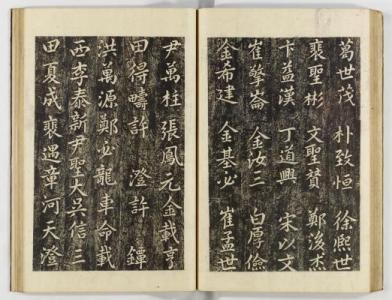 葛世茂 朴致恒 徐熙世
裵聖彬 文聖贊 鄭浚杰
卞益漢 丁道興 宋以文
崔擎崙 金汝三 白厚儉
金希建 金基必 崔孟世
尹萬柱 張鳳元 金載亨
田得疇 許澄 許鐔
洪萬源 鄭必龍 車命載
西李泰新 尹聖大 吳信三
田夏成 裵遇章 河天澄